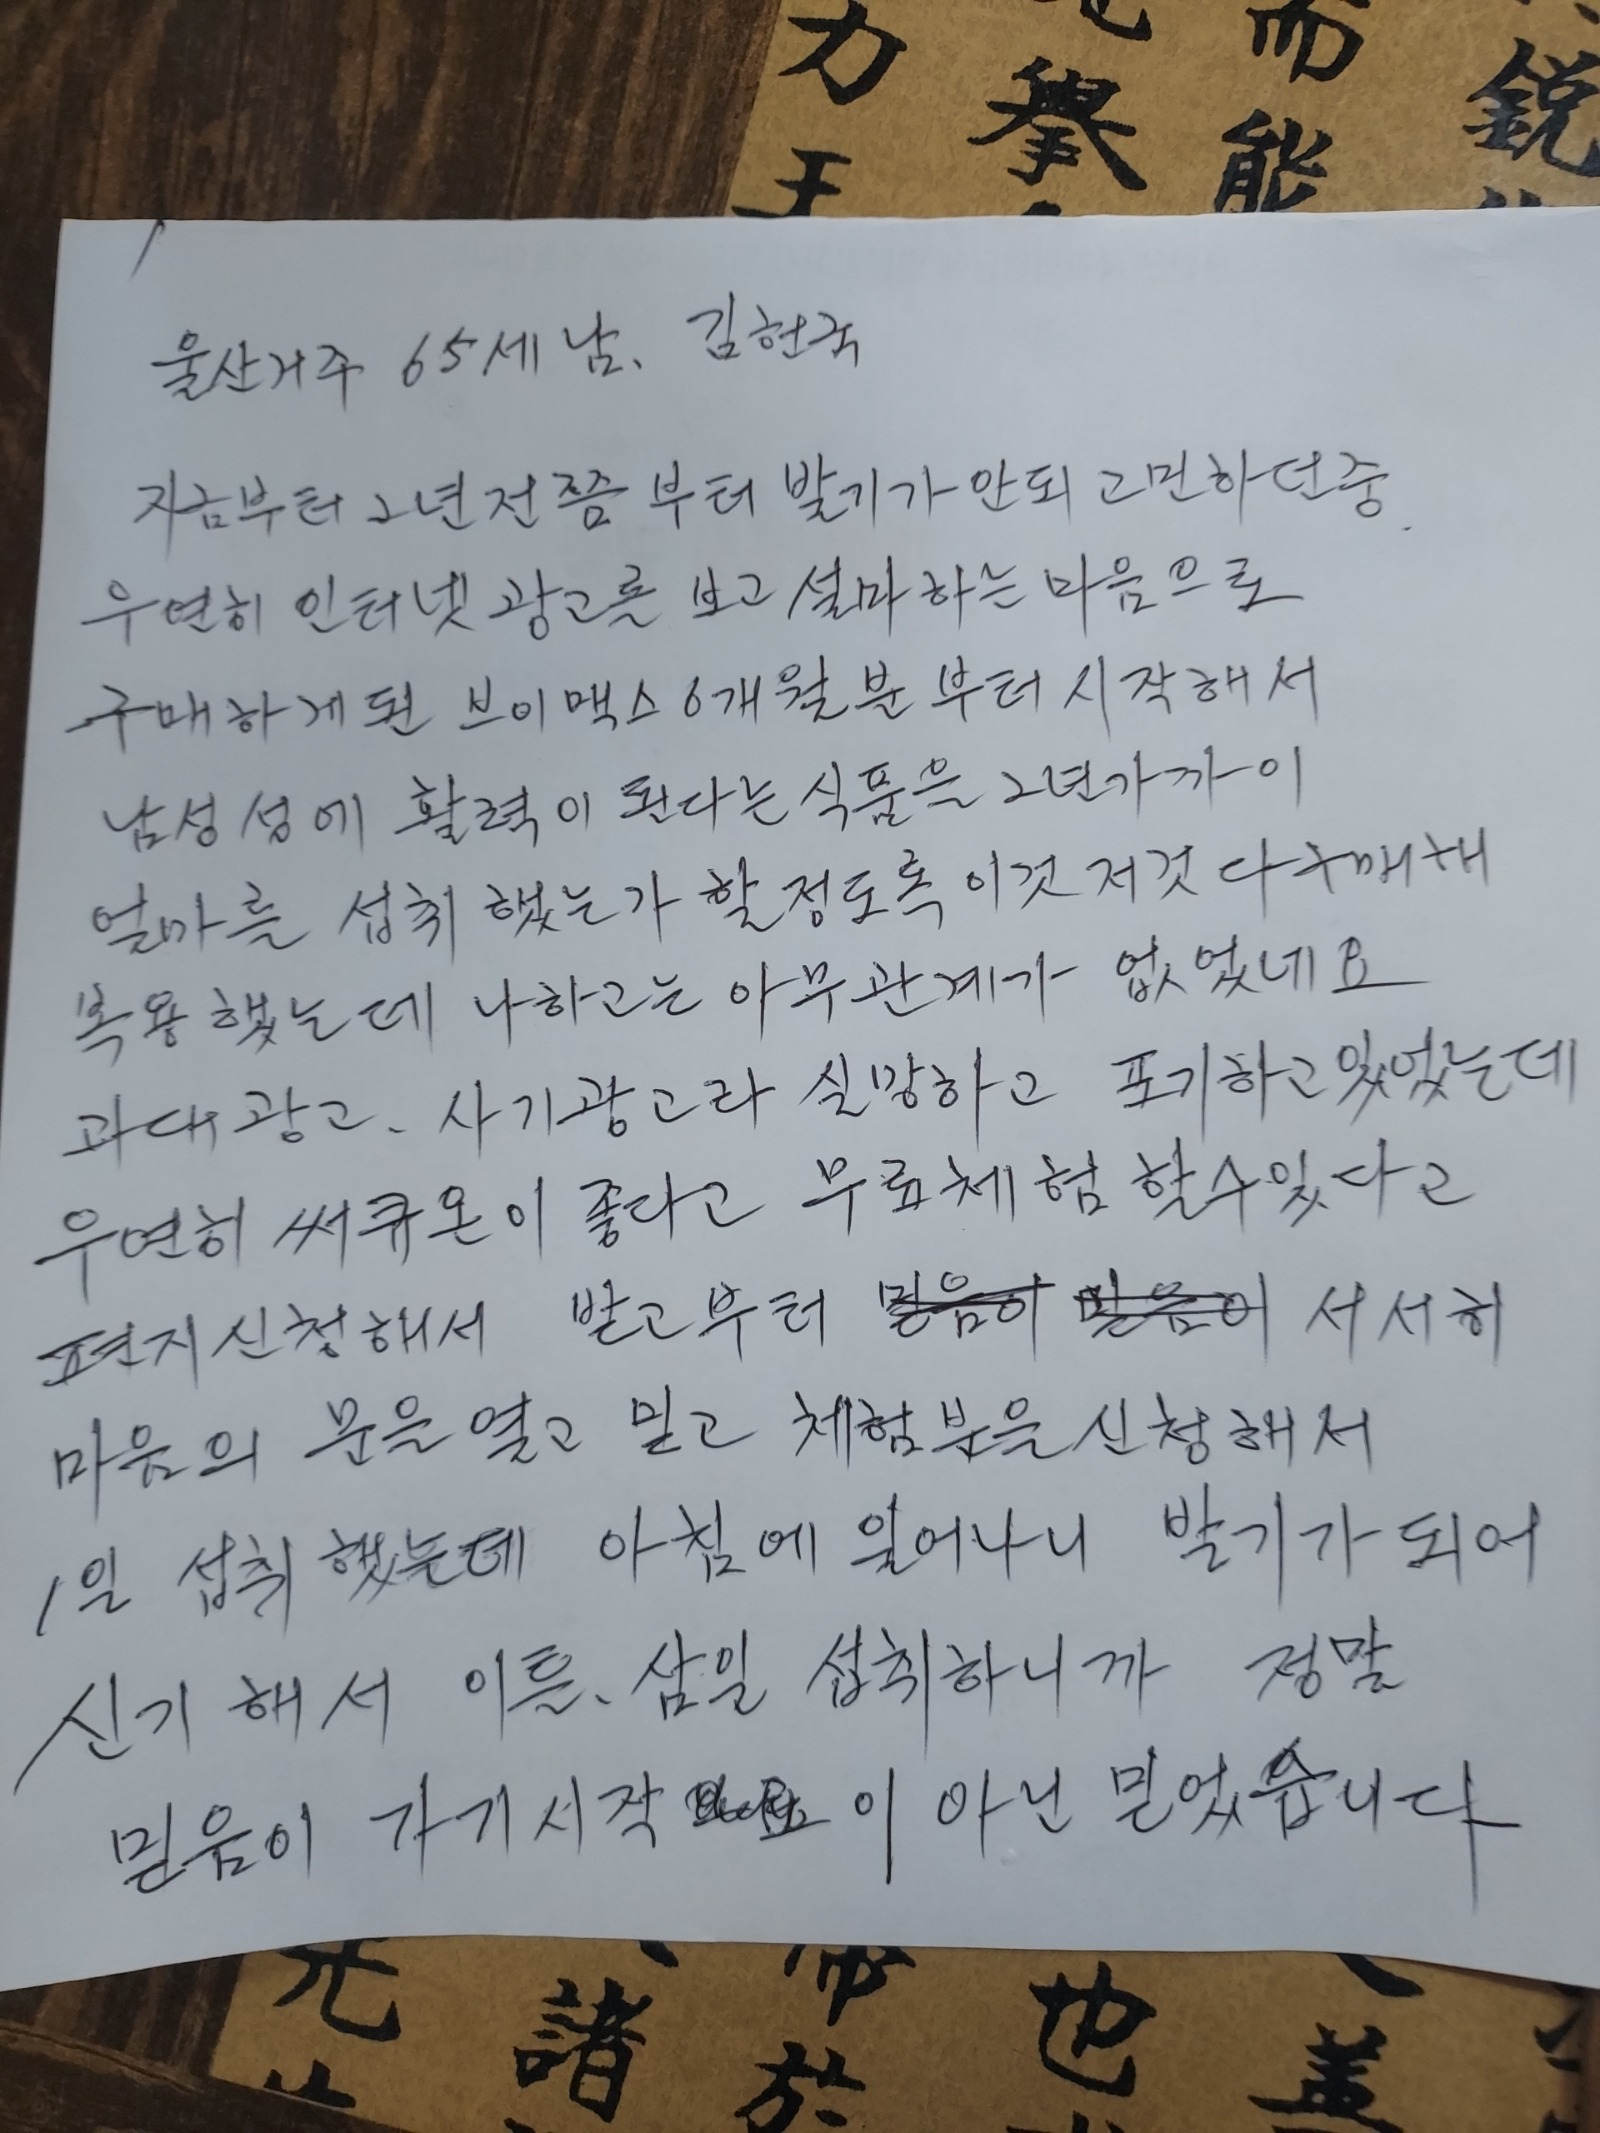 力 擧 而 銳
王 能
울산거주 65세 남、 김헌국
지금부터 2년전쯤 부터 발기가 안되 고민하던중.
우연히 인터넷 광고를 보고 설마 하는 마음으로
구매하게된 브이맥스 6개월분 부터 시작해서
남성성에 활력이 된다는 식품을 2년가까이
얼마를 섭취했는가 할정도록 이것저것 다구매해
복용했는데 나하고는 아무관계가 없었네요
과대광고、사기광고라 실망하고 포기하고있었는데
우연히 써큐온이 좋다고 무료체험 할수있다고
편지신청해서 받고부터 믿음이 믿음이 서서히
마음의 문을 열고 믿고 체험분을 신청해서
1일 섭취했는데 아침에 일어나니 발기가 되어
신기해서 이틀、삼일 섭취하니까 정말
믿음이 가기시작 이 아닌 믿었습니다
諸 於 也 蓋